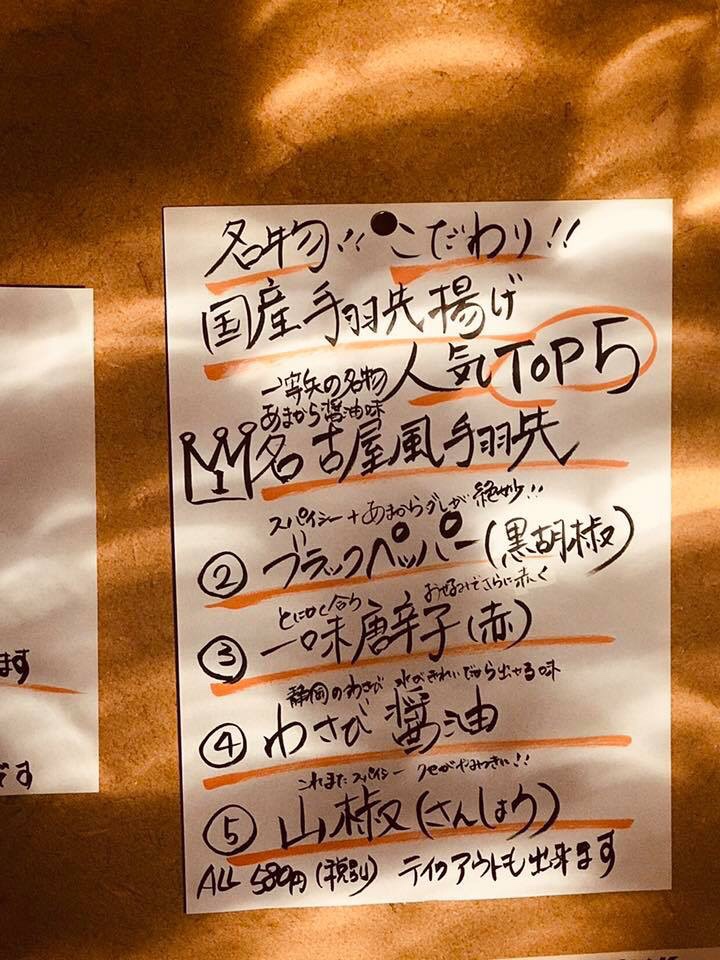 名物!! こだわり!!
国産手羽先揚げ
人気TOP5
の名物
あまから醤油味
1 名古屋風手羽先
スパイシー+あまからダレが絶妙!!
② ブラックペッパー(黒胡椒)
とにかく合う お好みでさらに赤く
③ 一味唐辛子(赤)
静岡のわさび 水がきれいだから出せる味
④ わさび醤油
これまたスパイシー クセがやみつき!!
⑤ 山椒(さんしょう)
ALL 580円(税別) テイクアウトも出来ます
ます
です